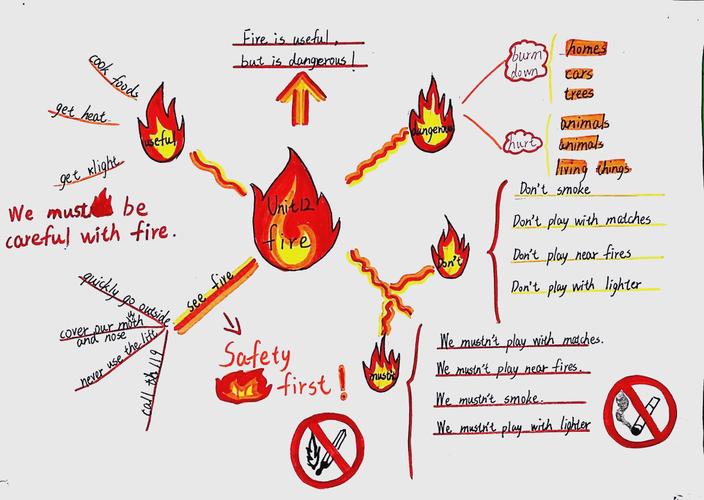 Fire is useful,
but is dangerous!
cook foods
get heat
get light
useful
We must be
careful with fire.
Unit12
fire
dangerous
burn
down
homes
cars
trees
hurt
animals
animals
living things
Don't
Don't smoke
Don't play with matches
Don't play near fires
Don't play with lighter
mustn't
We mustn't play with matches.
We mustn't play near fires.
We mustn't smoke.
We mustn't play with lighter
see fire
quickly go outside
cover our moth
and nose
never use the lift
call th 119
Safety
first!